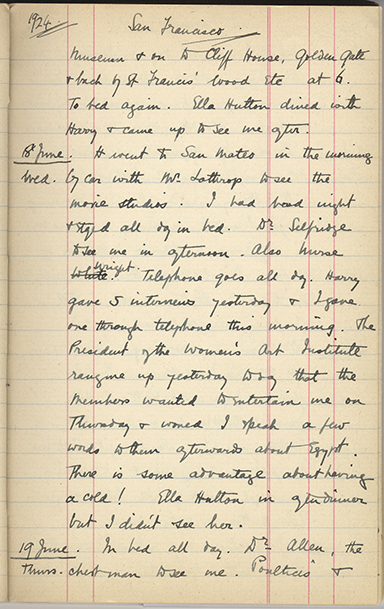 1924.
San Francisco.
Museum & on to Cliff House, Golden Gate
& back by St Francis' Wood Etc at 6.
To bed again. Ella Hutton dined with
Harry & came up to see me after.
18th June. H went to San Mateo in the morning
Wed. by car with Mr Lothrop to see the
movie studios. I had bad night
& stayed all day in bed. Dr. Selfridge
to see me in afternoon. Also Nurse
White. Wright. Telephone goes all day. Harry
gave 5 interviews yesterday & I gave
one through telephone this morning. The
President of the Women's Art Institute
rang me up yesterday to say that the
Members wanted to entertain me on
Thursday & would I speak a few
words to them afterwards about Egypt.
There is some advantage about having
a cold! Ella Hutton in after dinner
but I didn't see her.
19 June. In bed all day. Dr. Allen, the
Thurs. chest man to see me. Poultices &